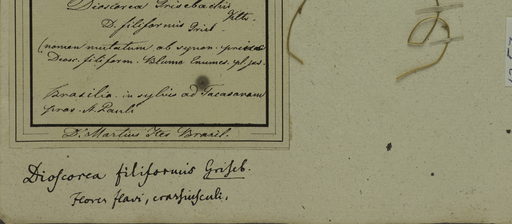 Dioscorea Grisebachii
Vtts.
D. filiformis Griseb.
(nomen mutatum ob synon. prius
Diosc. filiform. Blume Enumer. pl. jav.
Brasilia. in sylvis ad Tacasaram
prov. S. Pauli
D. Martius Iter Brazil.
Dioscorea filiformis Griseb.
Flores flavi, crassiusculi,